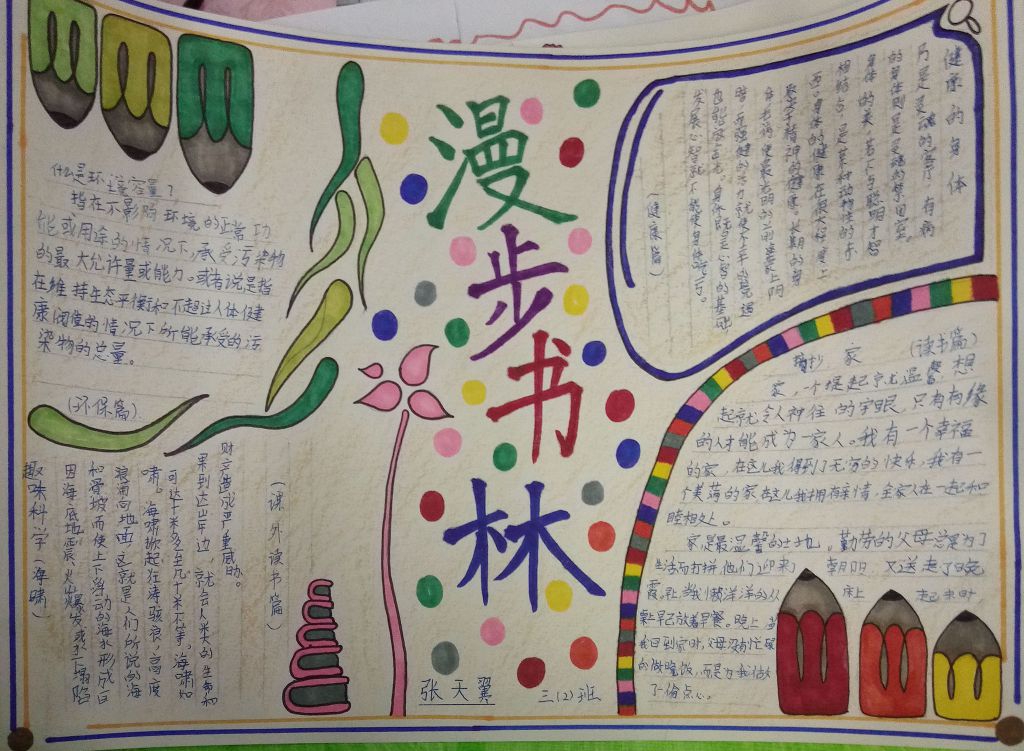 漫步书林
张天翼 三(2)班
什么是环境容量?
指在不影响环境的正常功
能或用途的情况下,承受污染物
的最大允许量或能力。或者说是指
在维持生态平衡和不超过人体健
康阈值的情况下所能承受的污
染物的总量。
(环保篇)
趣味科学:海啸
因海底地震、火山爆发或水下塌陷
和滑坡而使上下浮动的海水形成巨
浪涌向地面,这就是人们所说的海
啸。海啸掀起狂涛骇浪,高度
可达十米多至几十米不等。海啸如
果到达岸边,就会人类的生命和
财产造成严重威胁。
(课外读书篇)
健康的身体
乃是灵魂的客厅,有病
的身体则是灵魂的禁闭室
身体的美,若不与聪明才智
相结合,是某种动物性的东
西。身体的健康在很大程度上
取决于精神的健康。
发展心智就不能使身体吃亏。
(健康篇)
摘抄 家 (读书篇)
家,一个提起就温馨,想
起就令人神往的字眼,只有有缘
的人才能成为一家人。我有一个幸福
的家,在这儿我得到了无穷的快乐,我有一
个美满的家在这儿我拥有亲情,全家人在一起和
睦相处。
家是最温馨的土地,勤劳的父母总是为了
生活而打拼,他们迎来了朝阳,又送走了晚
霞。当我懒洋洋的从床上起来时
桌早已放着早餐。晚上当
我回到家时,父母没有忙碌
的做晚饭,而是为我做
了一偷点心。